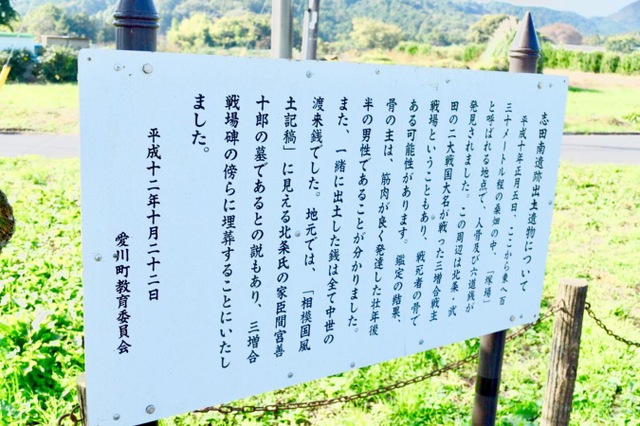 志田南遺跡出土遺物について
平成十年正月五日、ここから東へ百
三十メートル程の桑畑の中、「塚場」
と呼ばれる地点で、人骨及び六道銭が
発見されました。この周辺は北条・武
田の二大戦国大名が戦った三増合戦主
戦場ということもあり、戦死者の骨で
ある可能性があります。鑑定の結果、
骨の主は、筋肉が良く発達した壮年後
半の男性であることが分かりました。
また、一緒に出土した銭は全て中世の
渡来銭でした。地元では、「相模国風
土記稿」に見える北条氏の家臣間宮善
十郎の墓であるとの説もあり、三増合
戦場碑の傍らに埋葬することにいたし
ました。
平成十二年十月二十二日
愛川町教育委員会